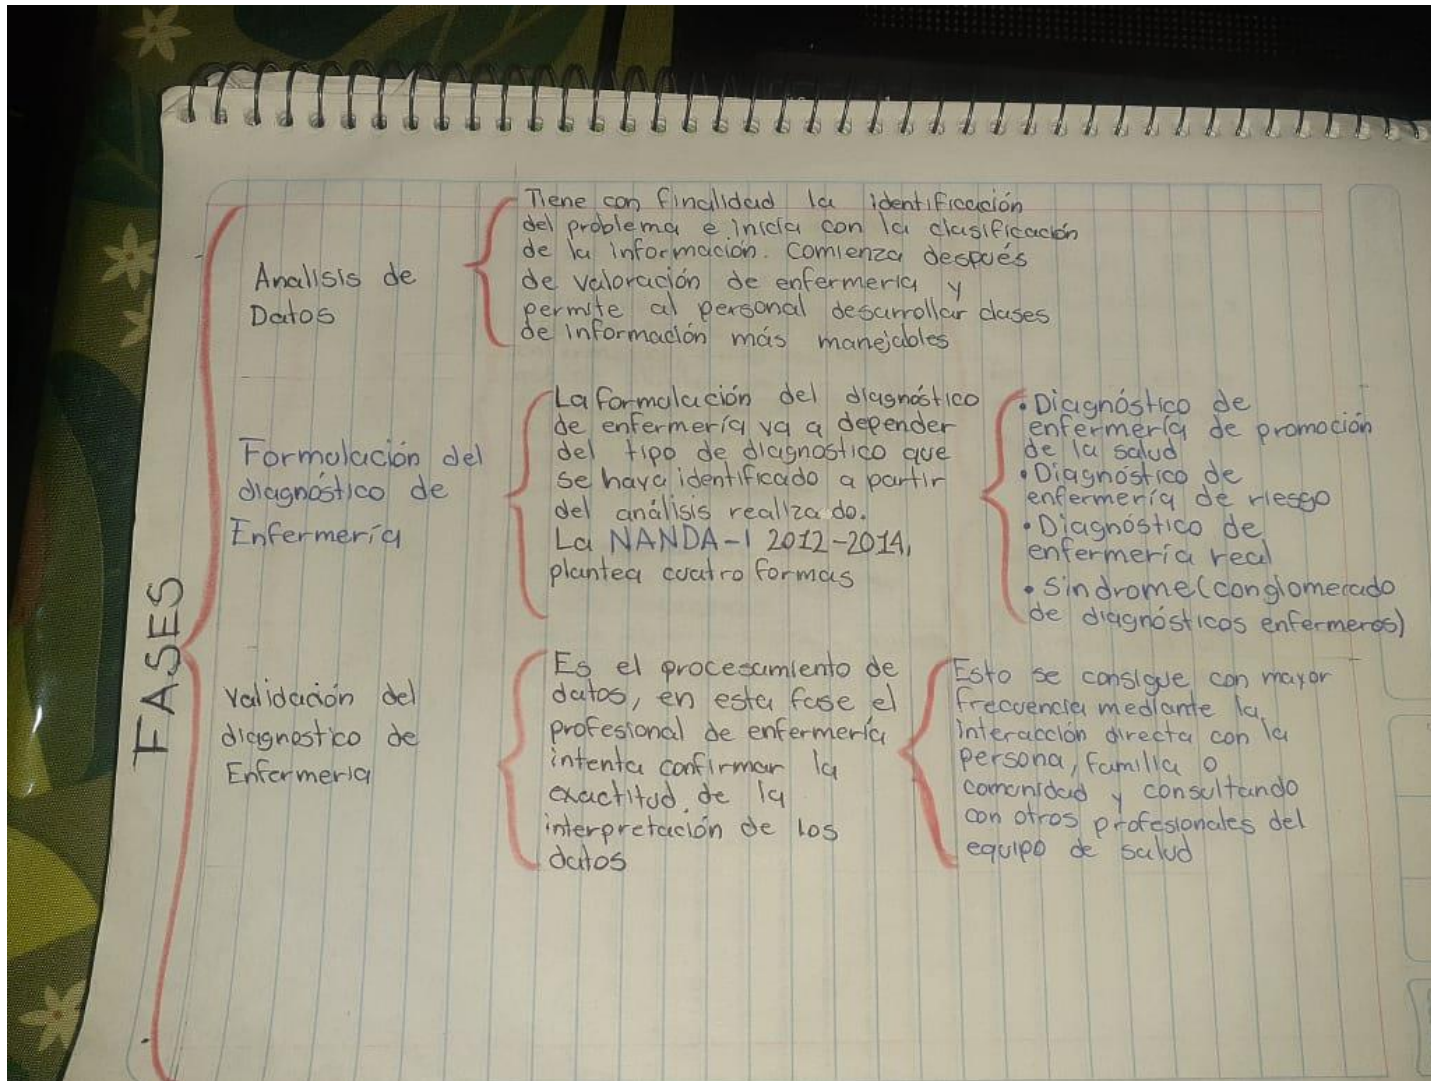 FASES
Analisis de
Datos
Tiene con finalidad la identificación
del problema e inicia con la clasificación
de la información. Comienza después
de valoración de enfermería y
permite al personal desarrollar clases
de información más manejables
Formulación del
diagnóstico de
Enfermería
La formulación del diagnóstico
de enfermería va a depender
del tipo de diagnostico que
se haya identificado a partir
del análisis realizado.
La NANDA-I 2012-2014,
plantea cuatro formas
• Diagnóstico de
enfermería de promoción
de la salud
• Diagnóstico de
enfermería de riesgo
• Diagnóstico de
enfermería real
• Sindrome (conglomerado
de diagnósticos enfermeros)
Validación del
diagnostico de
Enfermeria
Es el procesamiento de
datos, en esta fase el
profesional de enfermería
intenta confirmar la
exactitud de la
interpretación de los
datos
Esto se consigue con mayor
frecuencia mediante la
interacción directa con la
persona, familia o
comunidad y consultando
con otros profesionales del
equipo de salud